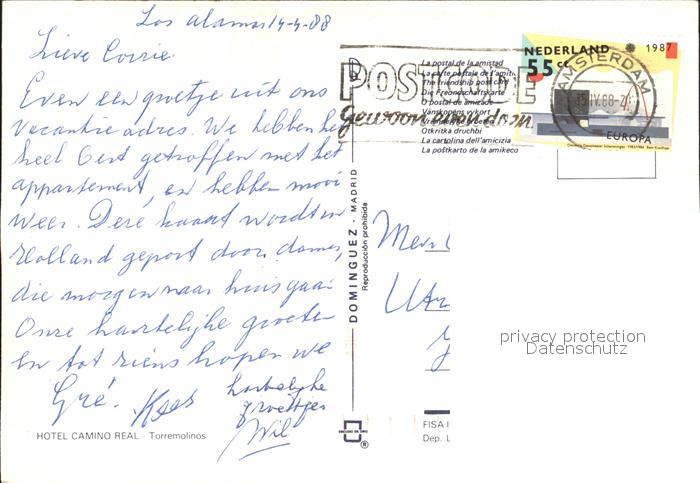 Los alamos 14-4-88
Lieve Corrie.
Even een groetje uit ons
vacantie adres. We hebben he
heel best getroffen met het
appartement, en hebben mooi
weer. Deze kaart wordt in
Holland gepost door dames,
die morgen naar huis gaan
Onze hartelijke groeten
en tot ziens hopen we
Gré. Kees
hartelijke
groetjes
Wil
HOTEL CAMINO REAL - Torremolinos
DOMINGUEZ - MADRID
Reproducción prohibida
ESCUDO DE ORO
®
La postal de la amistad
La carte postale de l'ami
The friendship post card
Die Freundschaftskarte
O postal de amizade
Vänskapens vykort
Otkritka druchbi
La cartolina dell'amicizia
La poŝtkarto de la amikeco
POSTCODE
gewoon
NEDERLAND 1987
55 c
AMSTERDAM
15.IV.88
EUROPA
Mevr
Utr
FISA I
Dep. L
privacy protection
Datenschutz